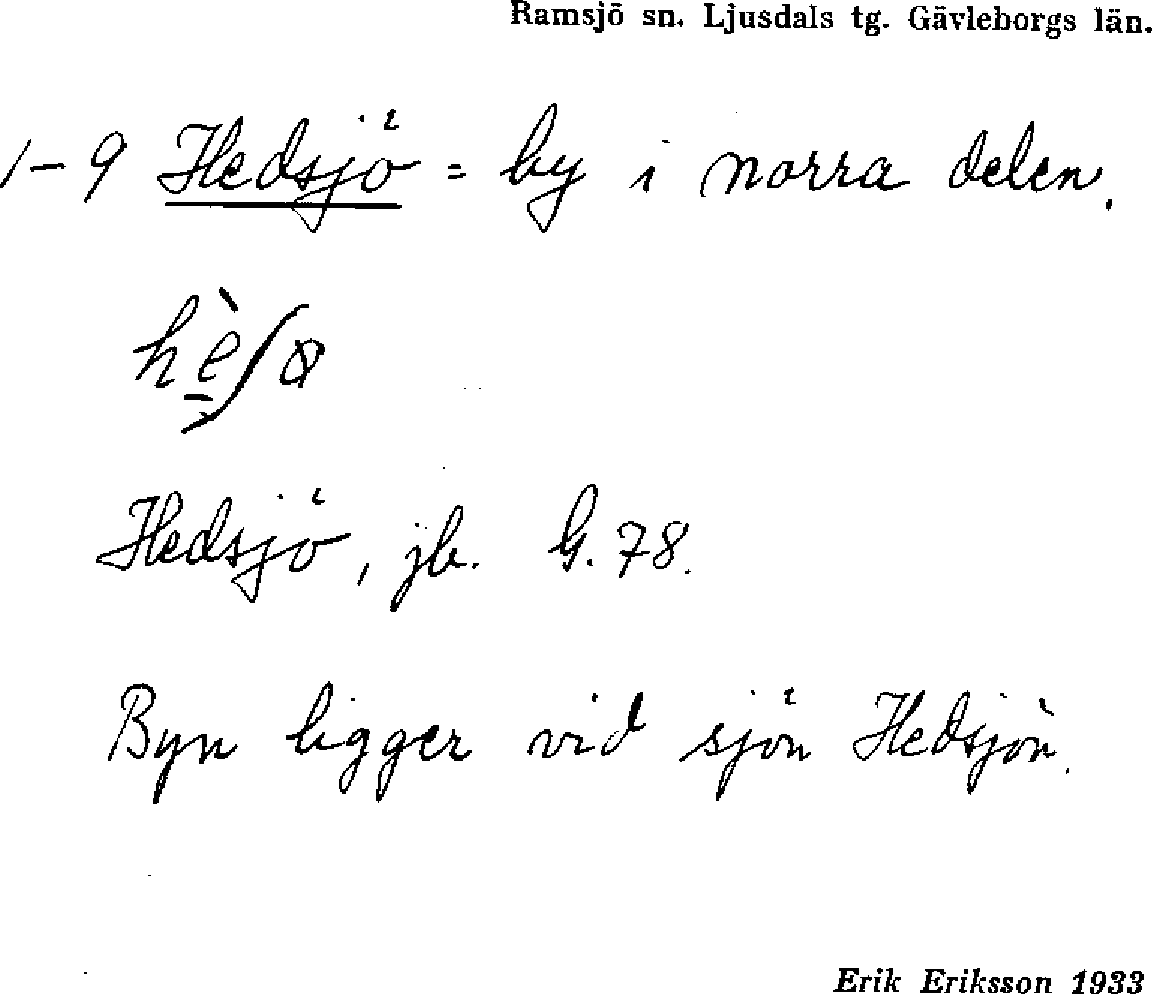 Ramsjö sn. Ljusdals tg. Gävleborgs län.
1-9 Hedsjö = by i norra delen.
Hedsjö, jb. G. 78.
Byn ligger vid sjön Hedsjön.
Erik Eriksson 1933